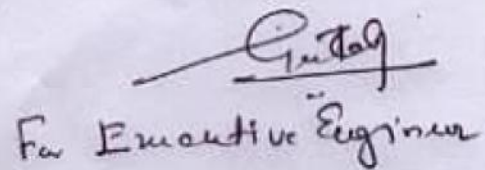 For Executive Engineer